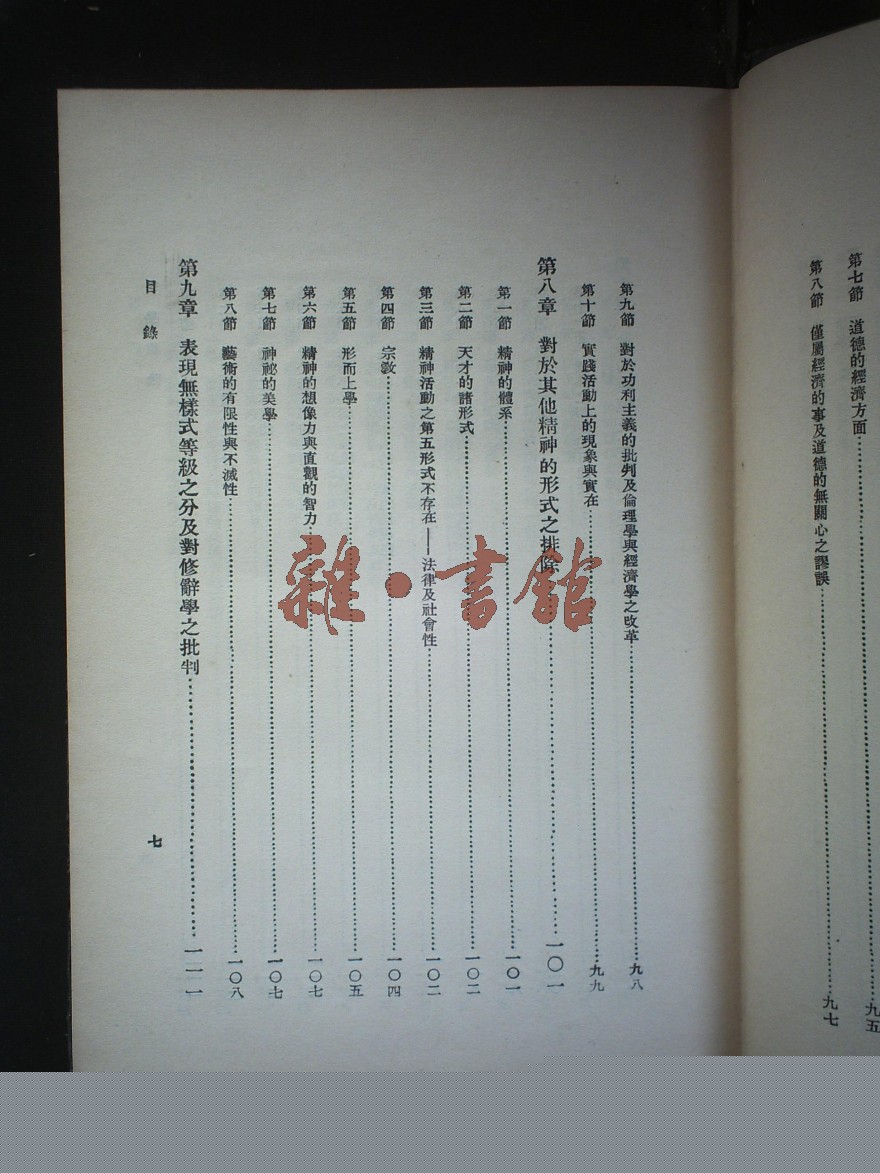 第七節　道德的經濟方面……九五
第八節　僅屬經濟的事及道德的無關心之謬誤……九七
第九節　對於功利主義的批判及倫理學與經濟學之改革……九八
第十節　實踐活動上的現象與實在……九九
第八章　對於其他精神的形式之排除……一〇一
第一節　精神的體系……一〇一
第二節　天才的諸形式……一〇二
第三節　精神活動之第五形式不存在——法律及社會性……一〇二
第四節　宗教……一〇四
第五節　形而上學……一〇五
第六節　精神的想像力與直觀的智力……一〇七
第七節　神祕的美學……一〇七
第八節　藝術的有限性與不滅性……一〇八
第九章　表現無樣式等級之分及對修辭學之批判……一一一
目錄
七
雜·書館